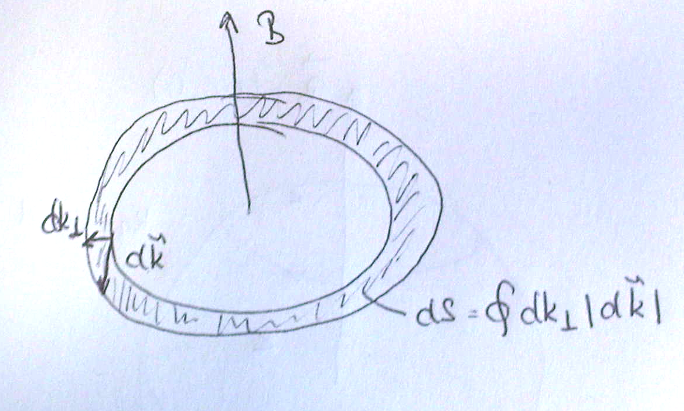 B
dk⊥
dk̆
dS = ∮ dk⊥ |dk̆|